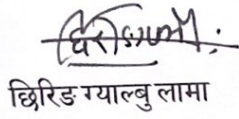 छिरिङ ग्याल्बु लामा